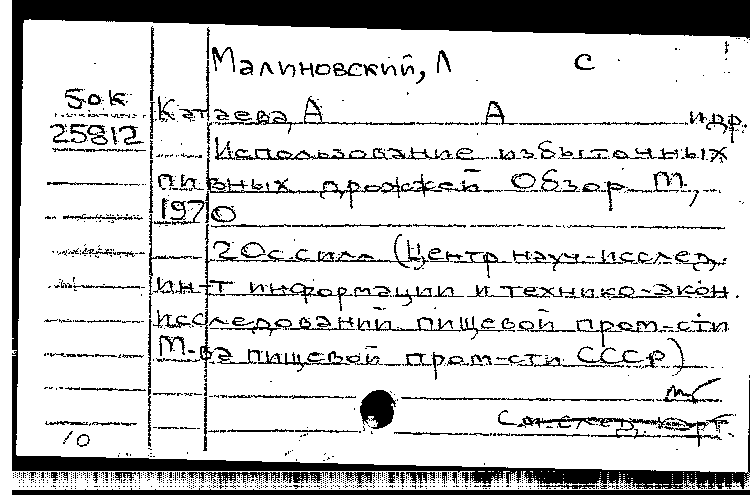 Малиновский, Л С
50К
Катаева, А А и др.
25812
Использование избыточных
пивных дрожжей Обзор М,
1970
20с с илл (Центр науч-исслед.
ин-т информации и технико-экон.
исследований пищевой пром-сти
М-ва пищевой пром-сти СССР)
См. след. карт.
10